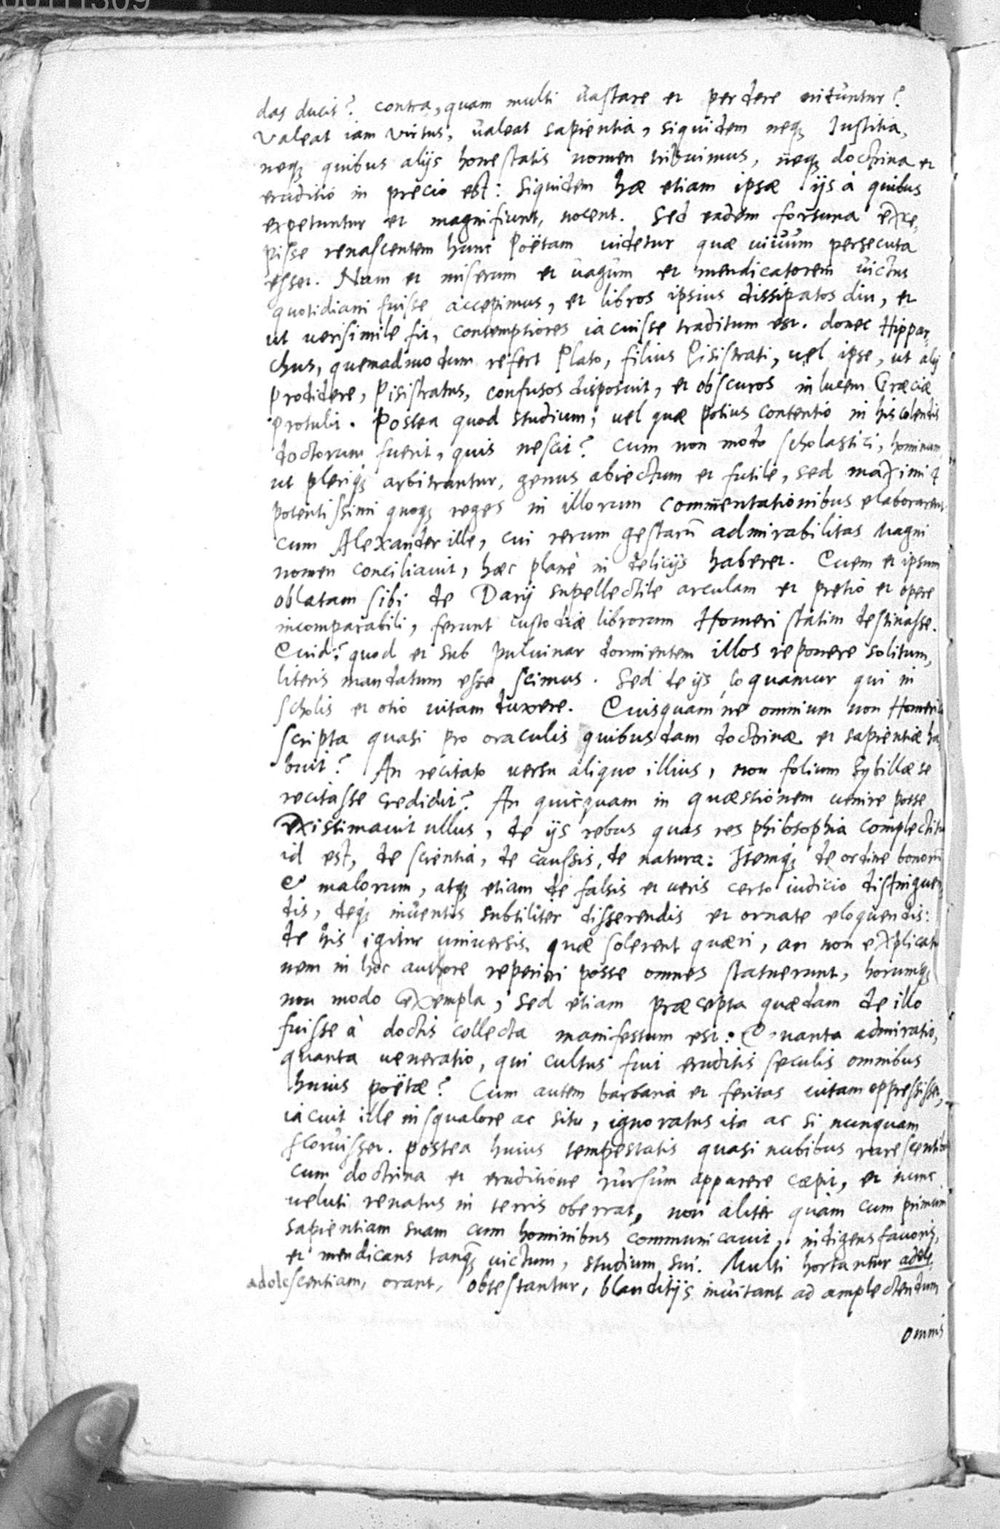 das ducis? contra, quam multi vastare et perdere nituntur?
Valeat iam virtus, valeat sapientia, siquidem neq; Iustitia,
neq; quibus alijs honestatis nomen tribuimus, neq; doctrina et
eruditio in precio est: Siquidem hæ etiam ipsæ ijs à quibus
expetuntur et magnifiunt, nocent. Sed eadem fortuna exce,
pisse renascentem hunc Poëtam videtur quæ vivum persecuta
esset. Nam et miserum et vagum et mendicatorem victus
quotidiani fuisse accepimus, et libros ipsius dissipatos diu, et
ut verisimile fit, contemptiores iacuisse traditum est. donec Hippar,
chus, quemadmodum refert Plato, filius Pisistrati, vel ipse, ut alij
prodidere, Pisistratus, confusos disposuit, et obscuros in lucem Græciæ
protulit. Postea quod studium, vel quæ potius contentio in his colendis
doctorum fuerit, quis nescit? Cum non modo scholastici, hominum,
ut pleriq; arbitrantur, genus abiectum et futile, sed maximi et
potentissimi quoq; reges in illorum commentationibus elaborarent.
cum Alexander ille, cui rerum gestarū admirabilitas Magni
nomen conciliavit, hæc planè in delicijs haberet. Cuem et ipsum
oblatam sibi de Darij supellectile arculam et pretio et opere
incomparabili, ferunt custodiæ librorum Homeri statim destinasse.
Cuid? quod et sub pulvinar dormientem illos reponere solitum,
literis mandatum esse scimus. Sed de ijs loquamur qui in
scholis et otio vitam duxere. Cuisquam ne omnium non Homeri
scripta quasi pro oraculis quibusdam doctrinæ et sapientiæ ha
buit? An recitato versu aliquo illius, non folium Sybillæ se
recitasse credidit? An quicquam in quæstionem venire posse
existimavit ullus, de ijs rebus quas res philosophia complectitur
id est, de scientia, de caussis, de natura: Itemq; de ordine bonorū
& malorum, atq; etiam de falsis et veris certo iudicio distinguen
dis, deq; inventis subtiliter disserendis et ornate eloquendis:
de his igitur universis quæ solerent quæri, an non explicatio
nem in hoc auctore reperiri posse omnes statuerunt, horumq;
non modo exempla, sed etiam præcepta quædam de illo
fuisse à doctis collecta manifestum est. Quanta admiratio,
quanta veneratio, qui cultus fuit eruditis seculis omnibus
huius poëtæ? Cum autem barbaria et feritas vitam oppressisset,
iacuit ille in squalore ac situ, ignoratus ita ac si nunquam
floruisset. Postea huius tempestatis quasi nubibus rarescentibus
cum doctrina et eruditione rursum apparere cæpit, et nunc
veluti renatus in terris oberrat, non aliter quàm cum primum
sapientiam suam cum hominibus communicavit, indigens favoris,
et mendicans tanq; victum, studium sui. Multi hortantur adole
adolescentiam, orant, obtestantur, blanditijs invitant ad amplectendum
omnis